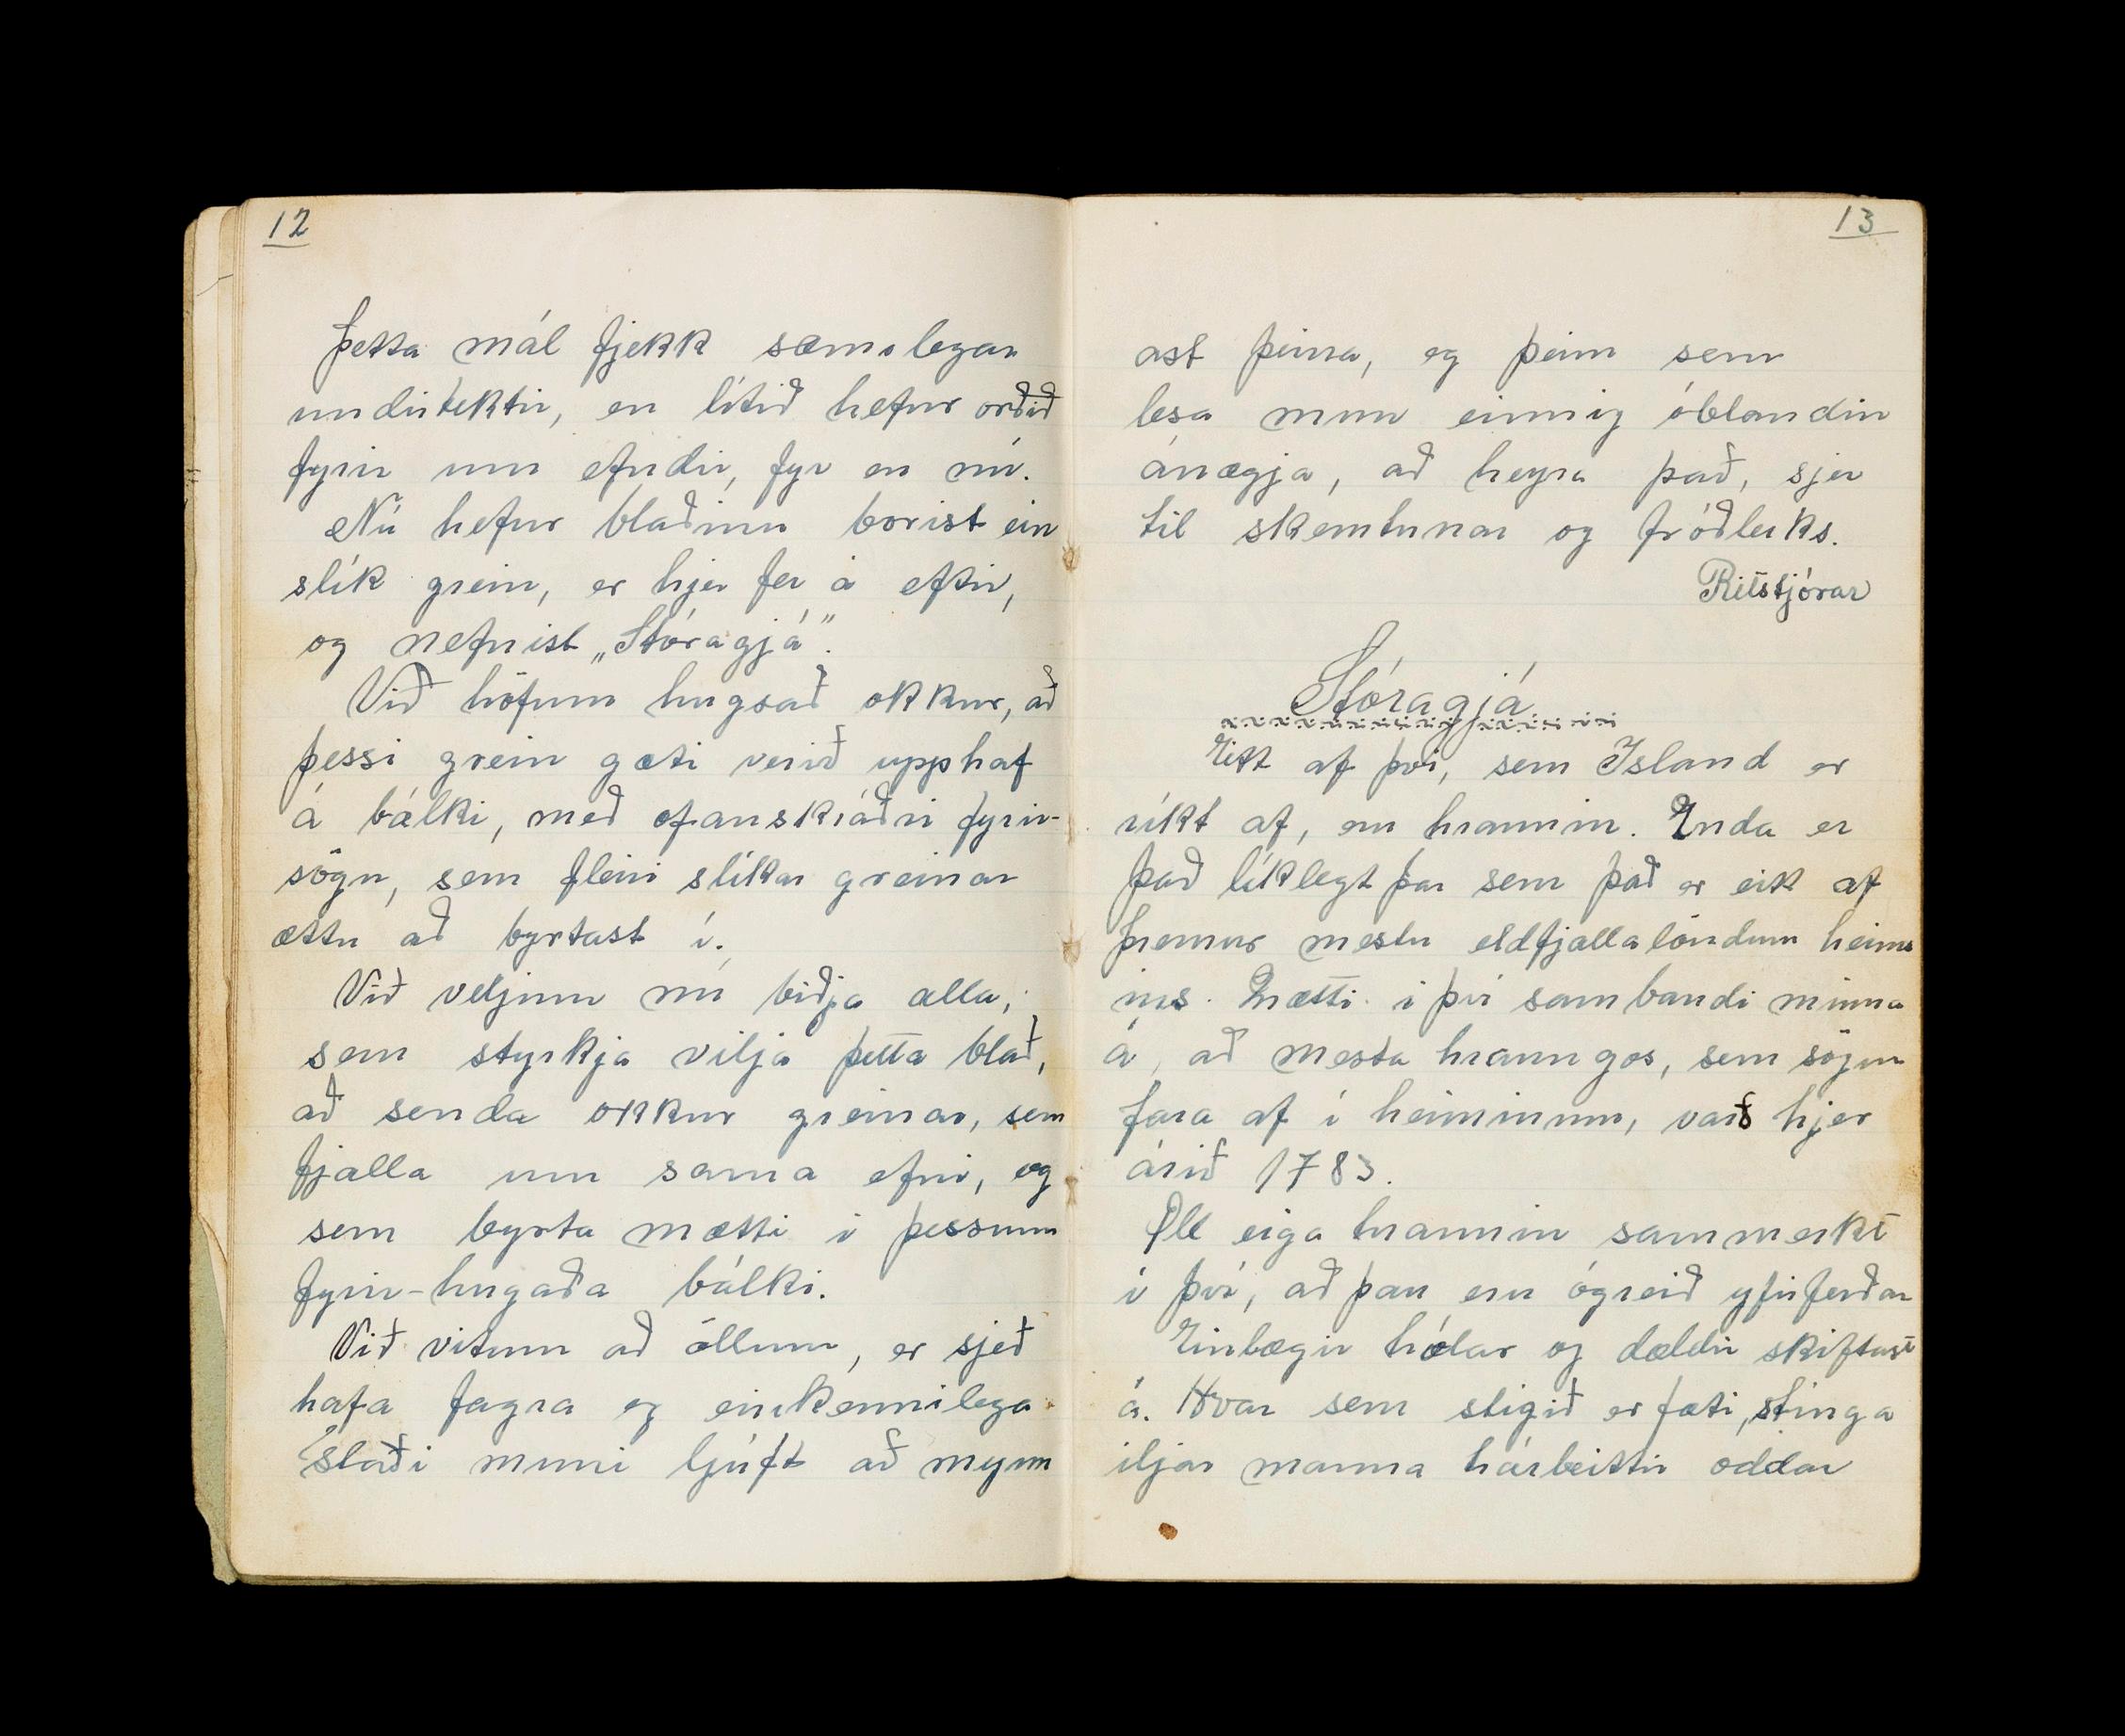 12
Þetta mál fjekk sæmilegar
undirtektir, en lítið hefur orðið
fyrir um efndir, fyr en nú.
Nú hefur blaðinu borist ein
slík grein, er hjer fer á eftir,
og nefnist „Stóragjá”.
Við höfum hugsað okkur, að
þessi grein gæti verið upphaf
á bálki, með ofanskráðri fyrir-
sögn, sem fleiri slíkar greinar
ættu að byrtast í.
Við veljum nú biðja alla,
sem styrkja vilja þetta blað,
að senda okkur greinar, sem
fjalla um sama efni, og
sem byrta mætti í þessum
fyrir-hugaða bálki.
Við vitum að öllum, er sjeð
hafa fagra og einkennilega
staði muni ljúft að mynn
13
ast þeirra, og þeim sem
lesa mun einnig óblandin
ánægja, að heyra það, sjer
til skemtunar og fróðleiks.
Ritstjórar
Stóragjá
Eitt af því, sem Island er
ríkt af, eru hraunin. Enda er
það líklegt þar sem það er eitt af
þremur mestu eldfjallalöndum heims
ins. Mætti í því sambandi minna
á, að mesta hraungos, sem sögur
fara af í heiminum, varð hjer
árið 1783.
Öll eiga hraunin sammerkt
í því, að þau eru ógreið yfirferðar
Einlægir hólar og dældir skiftast
á. Hvar sem stigið er fæti, stinga
iljar manna hárbeittir oddar